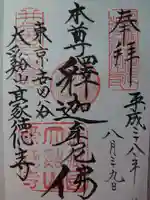 奉拝
平成二八年
八月二九日
本尊釋迦牟尼佛
東京世田谷
大谿山豪徳寺